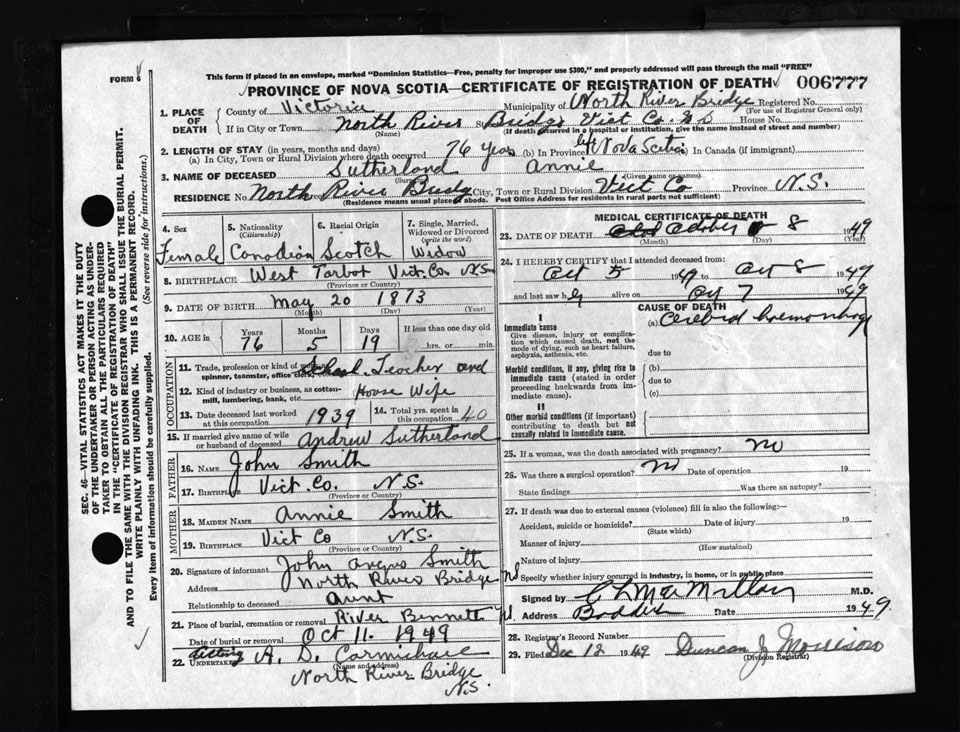 FORM 6
This form if placed in an envelope, marked "Dominion Statistics—Free, penalty for improper use $300," and properly addressed will pass through the mail "FREE"
PROVINCE OF NOVA SCOTIA—CERTIFICATE OF REGISTRATION OF DEATH 006777
SEC. 46—VITAL STATISTICS ACT MAKES IT THE DUTY
OF THE UNDERTAKER OR PERSON ACTING AS UNDER-
TAKER TO OBTAIN ALL THE PARTICULARS REQUIRED
IN THE "CERTIFICATE OF REGISTRATION OF DEATH"
AND TO FILE THE SAME WITH THE DIVISION REGISTRAR WHO SHALL ISSUE THE BURIAL PERMIT.
WRITE PLAINLY WITH UNFADING INK. THIS IS A PERMANENT RECORD.
Every item of information should be carefully supplied. (See reverse side for instructions.)
1. PLACE OF DEATH
County of Victoria Municipality of North River Bridge Registered No.
(For use of Registrar General only)
If in City or Town North River Bridge Vict Co. House No.
(Name) (If death occurred in a hospital or institution, give the name instead of street and number)
2. LENGTH OF STAY (in years, months and days)
(a) In City, Town or Rural Division where death occurred 76 years (b) In Province Nova Scotia (c) In Canada (if immigrant)
3. NAME OF DECEASED Sutherland Annie
(Surname) (Given name or names)
RESIDENCE No. North River Bridg City, Town or Rural Division Vict Co Province N.S.
(Residence means usual place of abode. Post Office Address for residents in rural parts not sufficient)
4. Sex
Female
5. Nationality
(Citizenship)
Canadian
6. Racial Origin
Scotch
7. Single, Married,
Widowed or Divorced
(write the word)
Widow
8. BIRTHPLACE West Tarbot Vict. Co. N.S
(Province or Country)
9. DATE OF BIRTH May 20 1873
(Month) (Day) (Year)
10. AGE in
Years Months Days If less than one day old
76 5 19 hrs. or min.
OCCUPATION
11. Trade, profession or kind of work as
spinner, teamster, office clerk, School Teacher and
12. Kind of industry or business, as cotton-
mill, lumbering, bank, etc. House Wife
13. Date deceased last worked
at this occupation 1939
14. Total yrs. spent in
this occupation 40
15. If married give name of wife
or husband of deceased Andrew Sutherland
FATHER
16. Name John Smith
17. Birthplace Vict. Co. N.S.
(Province or Country)
MOTHER
18. Maiden Name Annie Smith
19. Birthplace Vict Co N.S.
(Province or Country)
20. Signature of informant John Angus Smith
Address North River Bridge NS
Relationship to deceased Aunt
21. Place of burial, cremation or removal River Bennett
Date of burial or removal Oct 11. 1949
22. Acting UNDERTAKER A. D. Carmichael
(Name and address)
North River Bridge
N.S.
MEDICAL CERTIFICATE OF DEATH
23. DATE OF DEATH October 8 1949
(Month) (Day) (Year)
24. I HEREBY CERTIFY that I attended deceased from:
Oct 5 1949 to Oct 8 1949
and last saw h alive on Oct 7 1949
CAUSE OF DEATH
I
Immediate cause
Give disease, injury or complica-
tion which caused death, not the
mode of dying, such as heart failure,
asphyxia, asthenia, etc.
(a) Cerebral haemorrhage
due to
Morbid conditions, if any, giving rise to
immediate cause (stated in order
proceeding backwards from im-
mediate cause).
(b)
due to
(c)
II
Other morbid conditions (if important)
contributing to death but not
causally related to immediate cause.
25. If a woman, was the death associated with pregnancy? No
26. Was there a surgical operation? No Date of operation 19
State findings Was there an autopsy?
27. If death was due to external causes (violence) fill in also the following:—
Accident, suicide or homicide? Date of injury 19
(State which)
Manner of injury
(How sustained)
Nature of injury
Specify whether injury occurred in industry, in home, or in public place
Signed by C L MacMillan M.D.
Address Baddeck Date 1949
28. Registrar's Record Number
29. Filed Dec 12 1949 Duncan J Morrison
(Division Registrar)